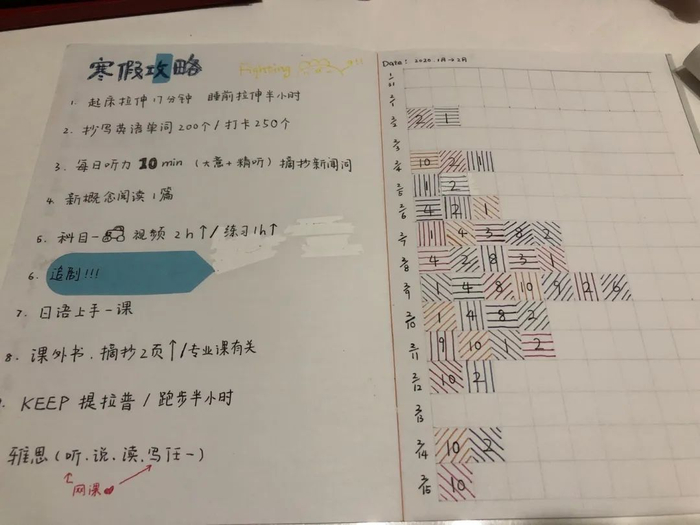 寒假攻略 Fighting !!!
1. 起床拉伸17分钟 睡前拉伸半小时
2. 抄写英语单词200个/打卡250个
3. 每日听力 10 min (大意+精听) 摘抄新闻词
4. 新概念阅读1篇
5. 科目一 视频 2h↑/练习1h↑
6. 追剧!!!
7. 日语上手一课
8. 课外书.摘抄2页↑/专业课有关
KEEP 提拉普 / 跑步半小时
雅思(听.说.读.写任一)
网课
Date: 2020.1月→2月
1/31
2/1
2/2 2 1
2/3
2/4 10 2 1
2/5 1 2
2/6 4 2 1
2/7 1 4 3 8 2
2/8 4 2 8 3 1
2/9 1 4 8 10 9 2 6
2/10 1 4 8 2
2/11 9 10 1 2
2/12 10 2
2/13
2/14 10 2
2/15 10